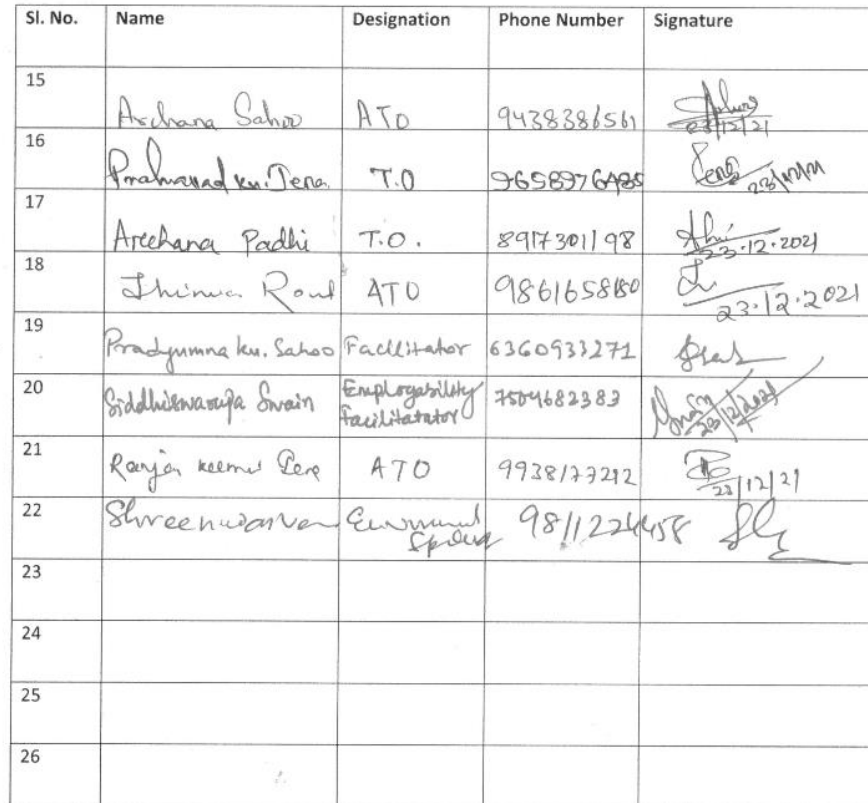 Sl. No. Name Designation Phone Number Signature
15 Archana Sahoo ATO 9438386561 23/12/21
16 Pralhad ku. Jena T.O 9658976485 Jena 23/12/21
17 Archana Padhi T.O. 8917301198 23.12.2021
18 Rout ATO 9861658180 23.12.2021
19 Pradyumna ku. Sahoo Facilitator 6360933271
20 Siddhiswarupa Swain Employability Facilitatator 7504682383 23/12/2021
21 Ranjan ATO 9938177212 23/12/21
22 9811224458
23
24
25
26